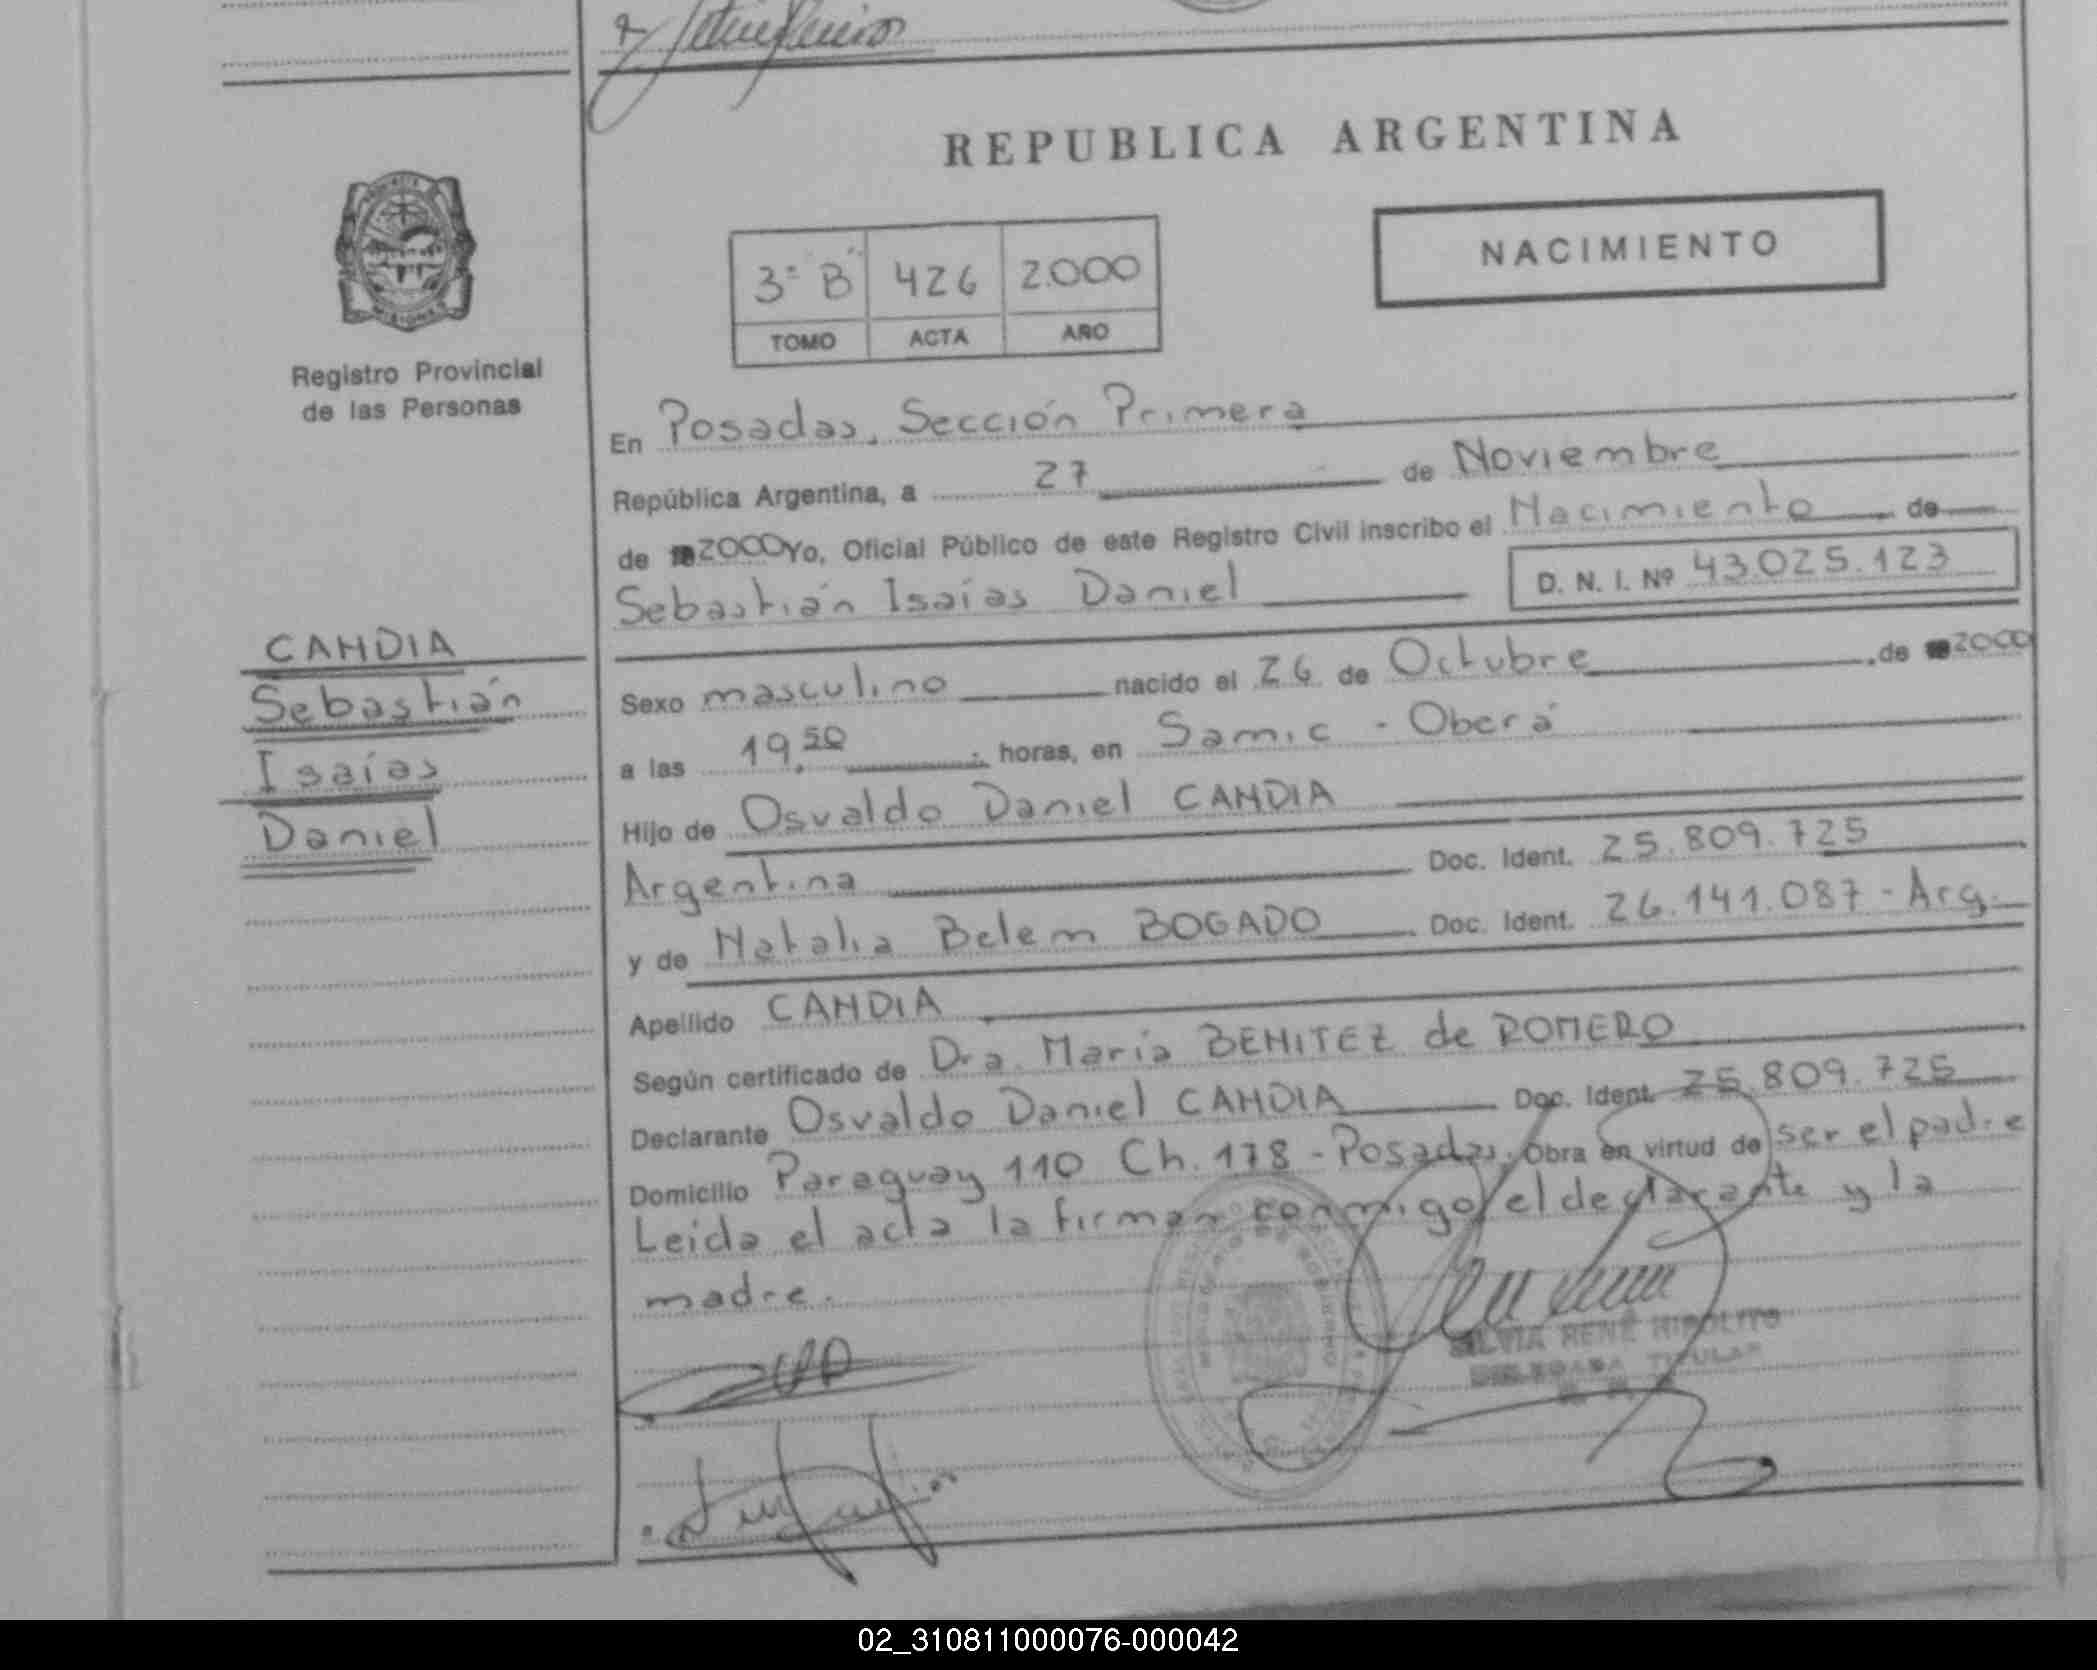 REPUBLICA ARGENTINA
NACIMIENTO
3º "B" 426 2.000
TOMO ACTA AÑO
Registro Provincial
de las Personas
En Posadas, Sección Primera
República Argentina, a 27 de Noviembre
de 2000 Yo, Oficial Público de este Registro Civil inscribo el Nacimiento de
Sebastián Isaías Daniel D. N. I. Nº 43.025.123
CANDIA
Sebastián
Isaías
Daniel
Sexo masculino nacido el 26 de Octubre de 2000
a las 19,50 horas, en Samic - Oberá
Hijo de Osvaldo Daniel CANDIA
Argentina Doc. Ident. 25.809.725
y de Natalia Belem BOGADO Doc. Ident. 26.141.087 - Arg.
Apellido CANDIA
Según certificado de Dra. María BENITEZ de ROMERO
Declarante Osvaldo Daniel CANDIA Doc. Ident. 25.809.725
Domicilio Paraguay 110 Ch. 178 - Posadas. Obra en virtud de ser el padre
Leída el acta la firman conmigo el declarante y la
madre.
SILVIA RENÉ HIPOLITO
DELEGADA TITULAR
02_310811000076-000042